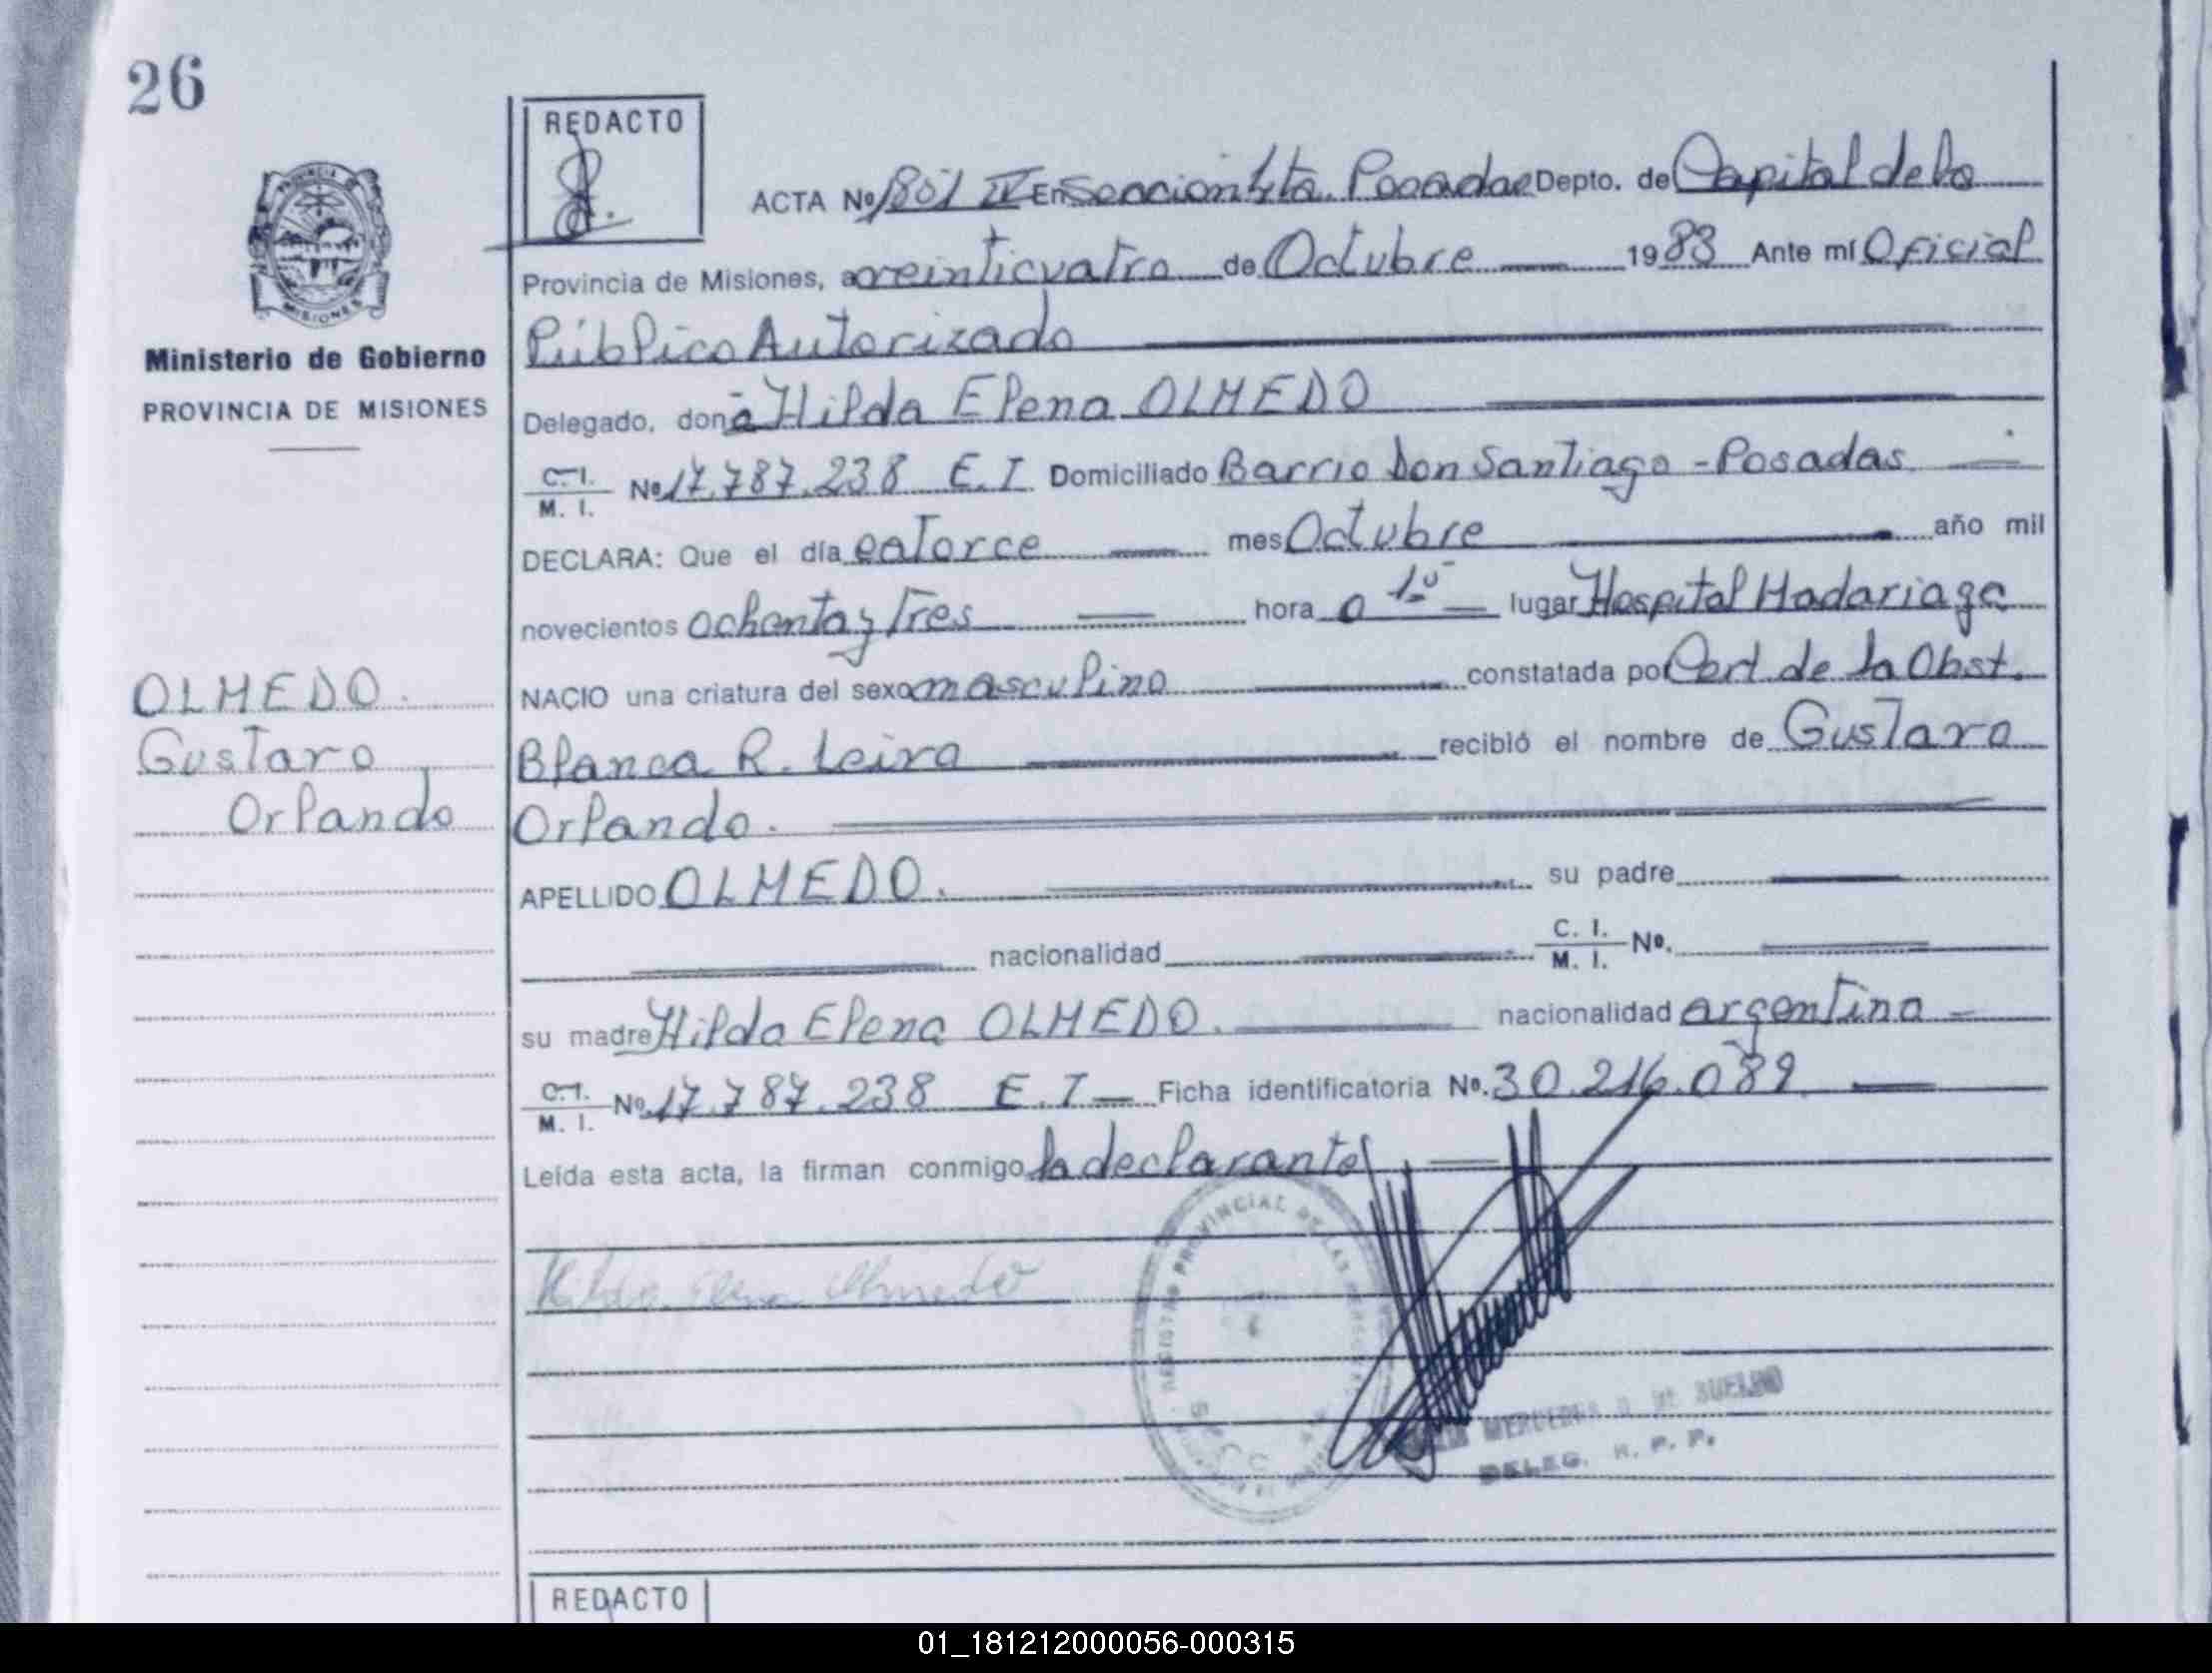 26
REDACTO
ACTA Nº 1801 IV En Seccion 4ta. Posadas Depto. de Capital de la
Provincia de Misiones, a veinticuatro de Octubre 1983 Ante mí Oficial
Público Autorizado
Ministerio de Gobierno
PROVINCIA DE MISIONES
Delegado, doña Hilda Elena OLMEDO
C. I.
M. I. Nº 17.787.238 E.I Domiciliado Barrio Don Santiago - Posadas
DECLARA: Que el día catorce mes Octubre año mil
novecientos ochenta y Tres hora 0 10 lugar Hospital Madariaga
NACIO una criatura del sexo masculino constatada por Cert de la Obst.
Blanca R. Leiva recibió el nombre de Gustavo
Orlando.
OLMEDO.
Gustavo
Orlando
APELLIDO OLMEDO. su padre
nacionalidad C. I.
M. I. Nº.
su madre Hilda Elena OLMEDO. nacionalidad argentina
C. I.
M. I. Nº 17.787.238 E.I Ficha identificatoria Nº. 30.216.089
Leída esta acta, la firman conmigo la declarante
Hilda Elena Olmedo
REGISTRO PROVINCIAL DE LAS
DE SUELDO
DELEG. R. P. P.
REDACTO
01_181212000056-000315